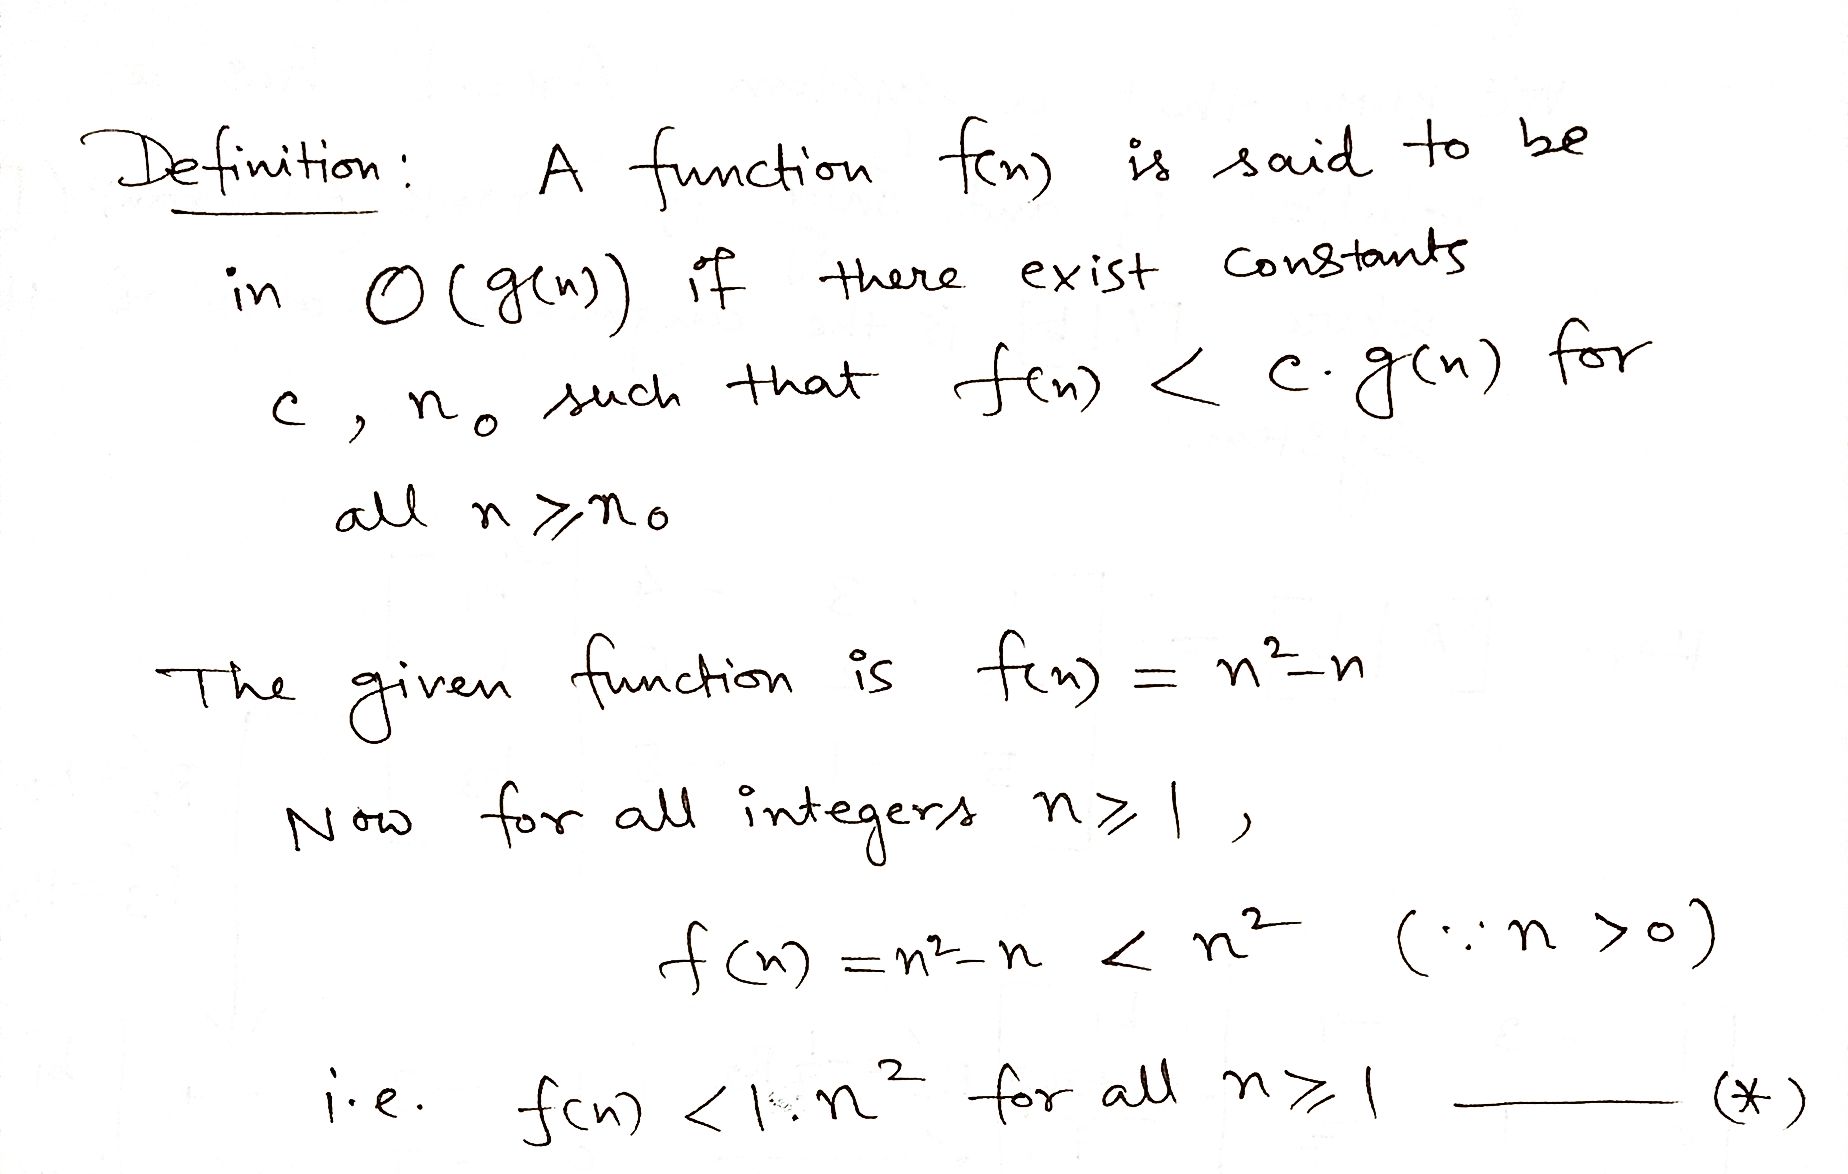 Definition: A function f(n) is said to be
in O(g(n)) if there exist constants
c, n₀ such that f(n) < c.g(n) for
all n ⩾ n₀
The given function is f(n) = n²-n
Now for all integers n ⩾ 1,
f(n) = n²-n < n² (∵ n > 0)
i.e. f(n) < 1.n² for all n ⩾ 1 —— (*)